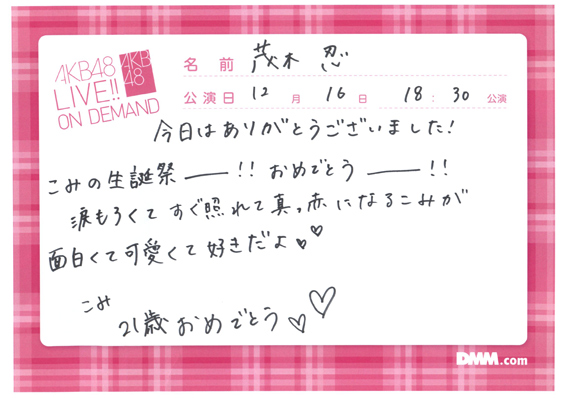 AKB48
LIVE!!
ON DEMAND
AKB
48
名 前 茂木 忍
公演日 12 月 16 日 18 : 30 公演
今日はありがとうございました!
こみの生誕祭――!! おめでとう――!!
涙もろくてすぐ照れて真っ赤になるこみが
面白くて可愛くて好きだよ♥♥
こみ
21歳おめでとう♡♡
DMM.com